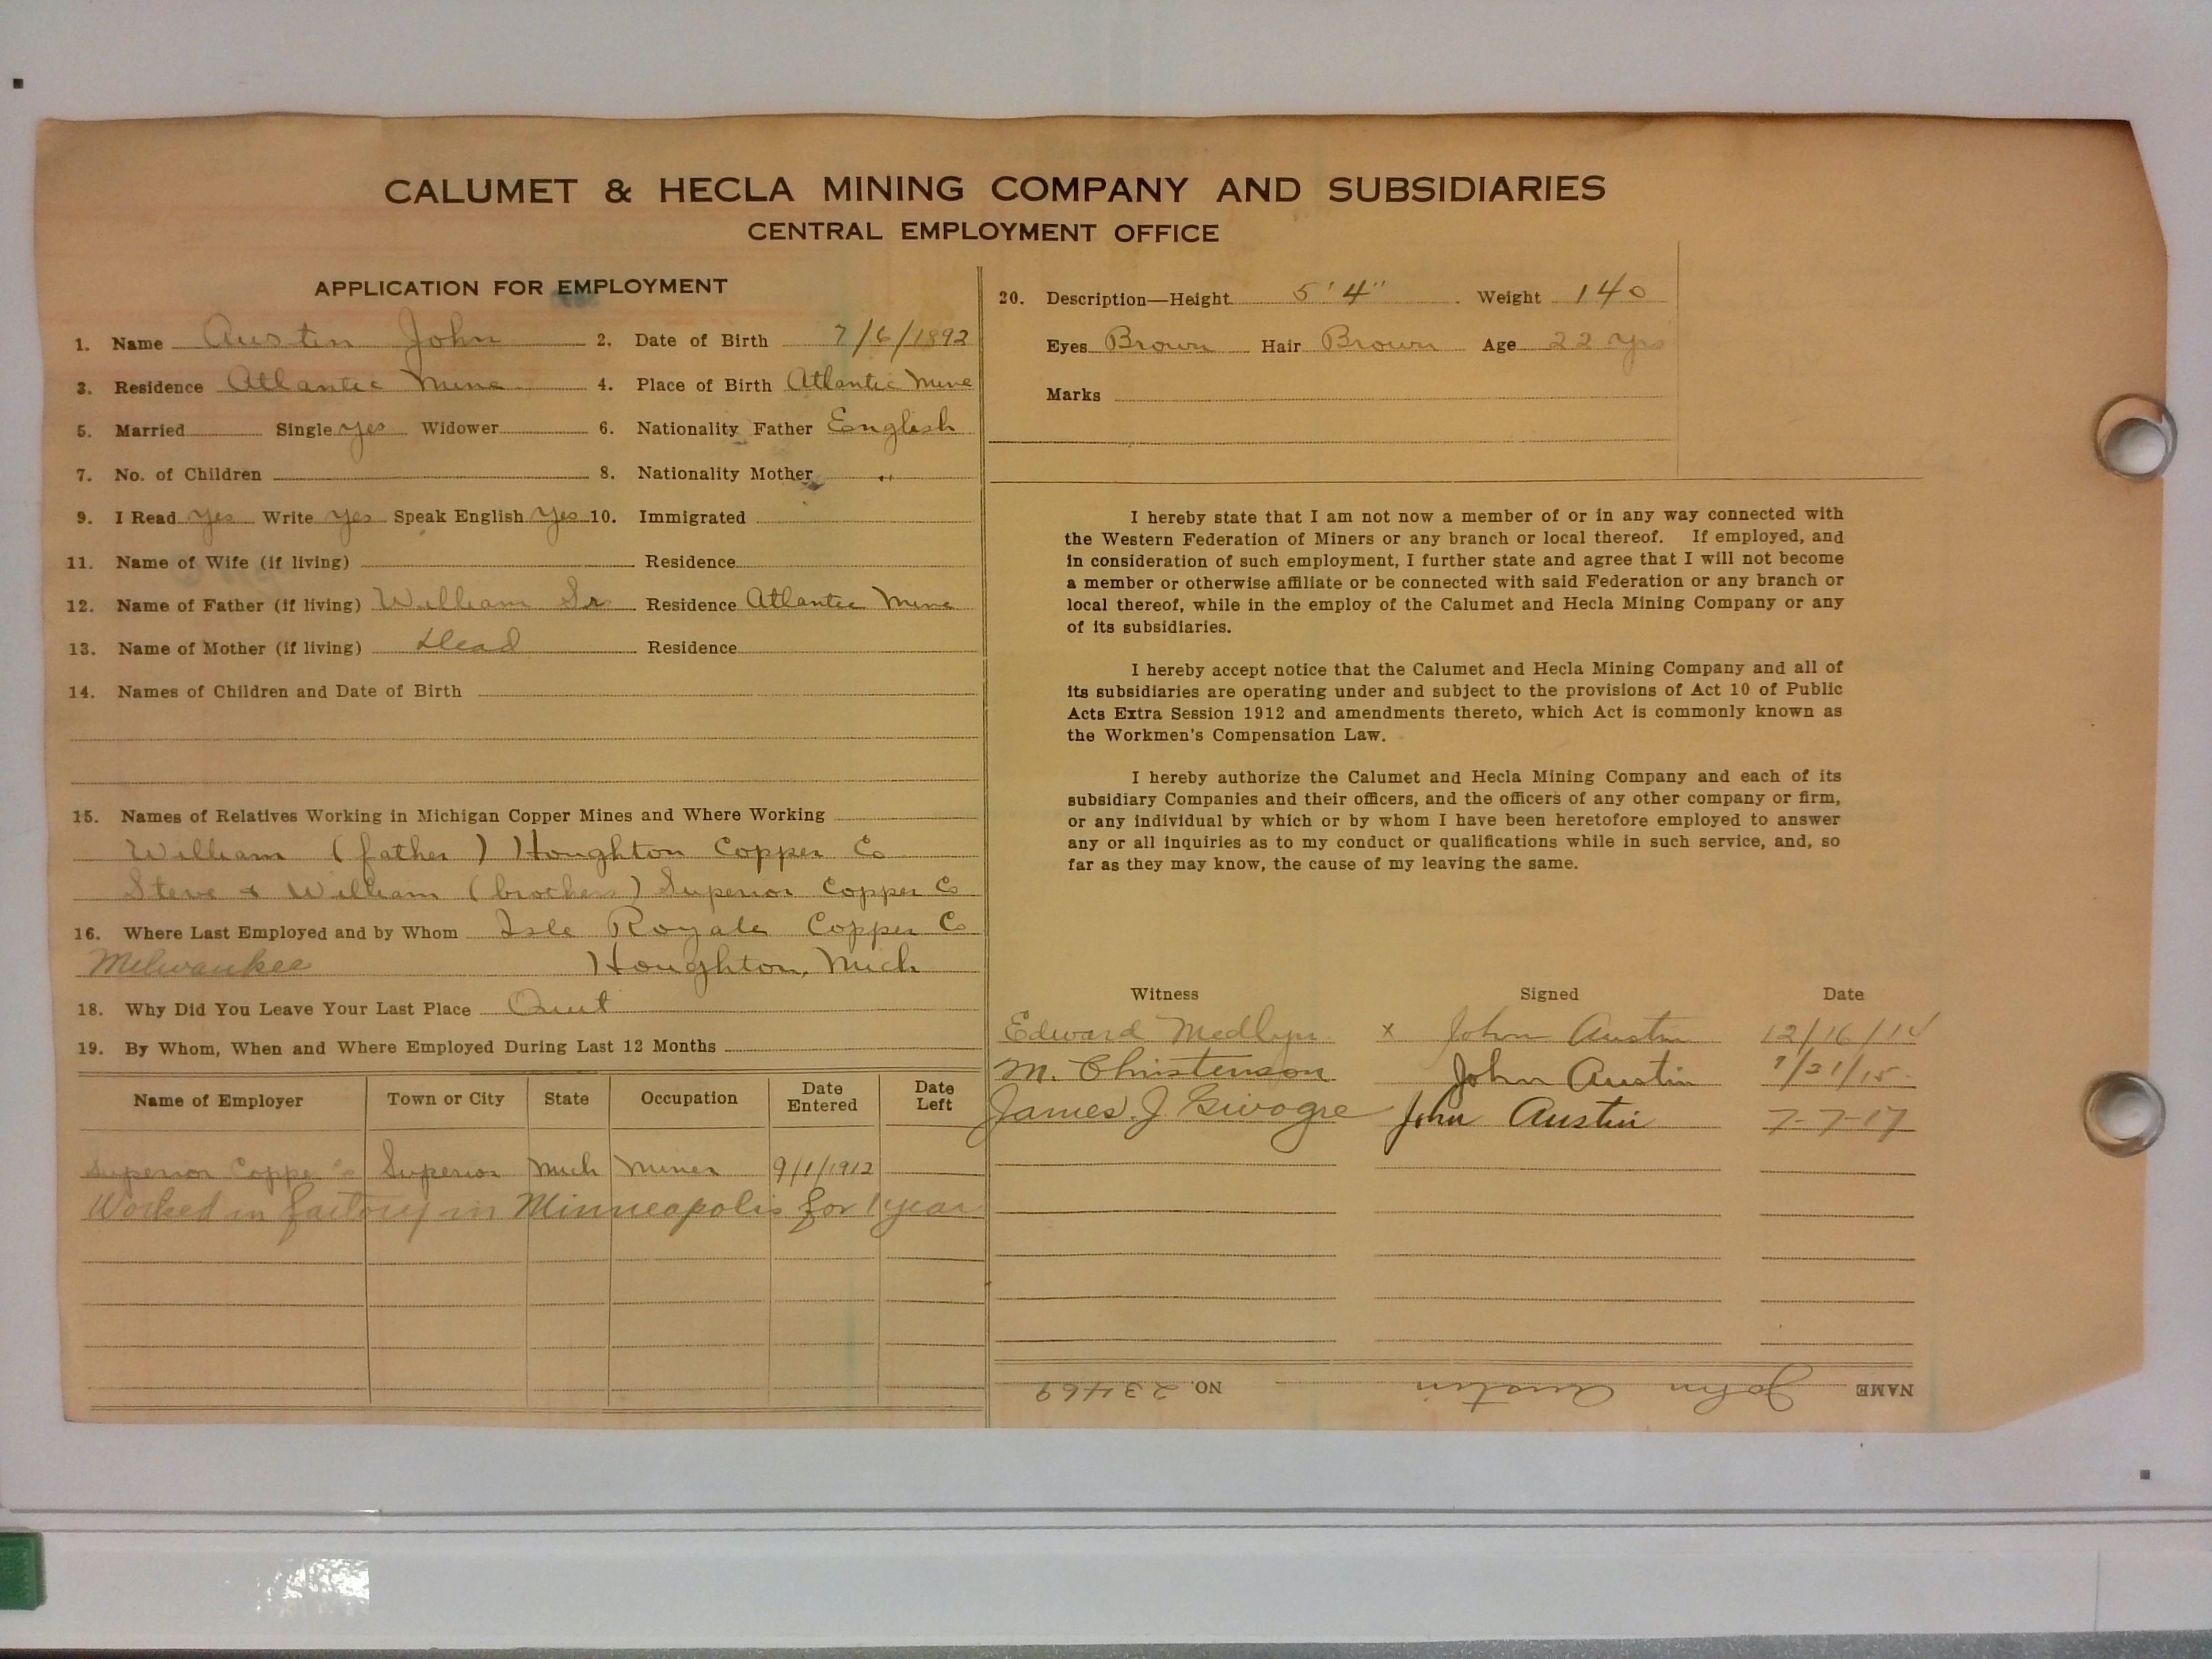 CALUMET & HECLA MINING COMPANY AND SUBSIDIARIES
CENTRAL EMPLOYMENT OFFICE
APPLICATION FOR EMPLOYMENT
1. Name Austin John 2. Date of Birth 7/6/1892
3. Residence Atlantic Mine 4. Place of Birth Atlantic Mine
5. Married Single yes Widower 6. Nationality Father English
7. No. of Children 8. Nationality Mother "
9. I Read yes Write yes Speak English yes 10. Immigrated
11. Name of Wife (if living) Residence
12. Name of Father (if living) William Sr Residence Atlantic Mine
13. Name of Mother (if living) Dead Residence
14. Names of Children and Date of Birth
15. Names of Relatives Working in Michigan Copper Mines and Where Working
William (father) Houghton Copper Co
Steve & William (brothers) Superior Copper Co
16. Where Last Employed and by Whom Isle Royale Copper Co
Milwaukee Houghton, Mich
18. Why Did You Leave Your Last Place Quit
19. By Whom, When and Where Employed During Last 12 Months
Name of Employer Town or City State Occupation Date Entered Date Left
Superior Copper Co Superior Mich Miner 9/1/1912
Worked in factory in Minneapolis for 1 year
20. Description—Height 5' 4" Weight 140
Eyes Brown Hair Brown Age 22 yrs
Marks
I hereby state that I am not now a member of or in any way connected with
the Western Federation of Miners or any branch or local thereof. If employed, and
in consideration of such employment, I further state and agree that I will not become
a member or otherwise affiliate or be connected with said Federation or any branch or
local thereof, while in the employ of the Calumet and Hecla Mining Company or any
of its subsidiaries.
I hereby accept notice that the Calumet and Hecla Mining Company and all of
its subsidiaries are operating under and subject to the provisions of Act 10 of Public
Acts Extra Session 1912 and amendments thereto, which Act is commonly known as
the Workmen's Compensation Law.
I hereby authorize the Calumet and Hecla Mining Company and each of its
subsidiary Companies and their officers, and the officers of any other company or firm,
or any individual by which or by whom I have been heretofore employed to answer
any or all inquiries as to my conduct or qualifications while in such service, and, so
far as they may know, the cause of my leaving the same.
Witness Signed Date
Edward Medlyn x John Austin 12/16/14
M. Christenson John Austin /21/15
James J. John Austin 7-7-17
NAME John Austin NO. 23469